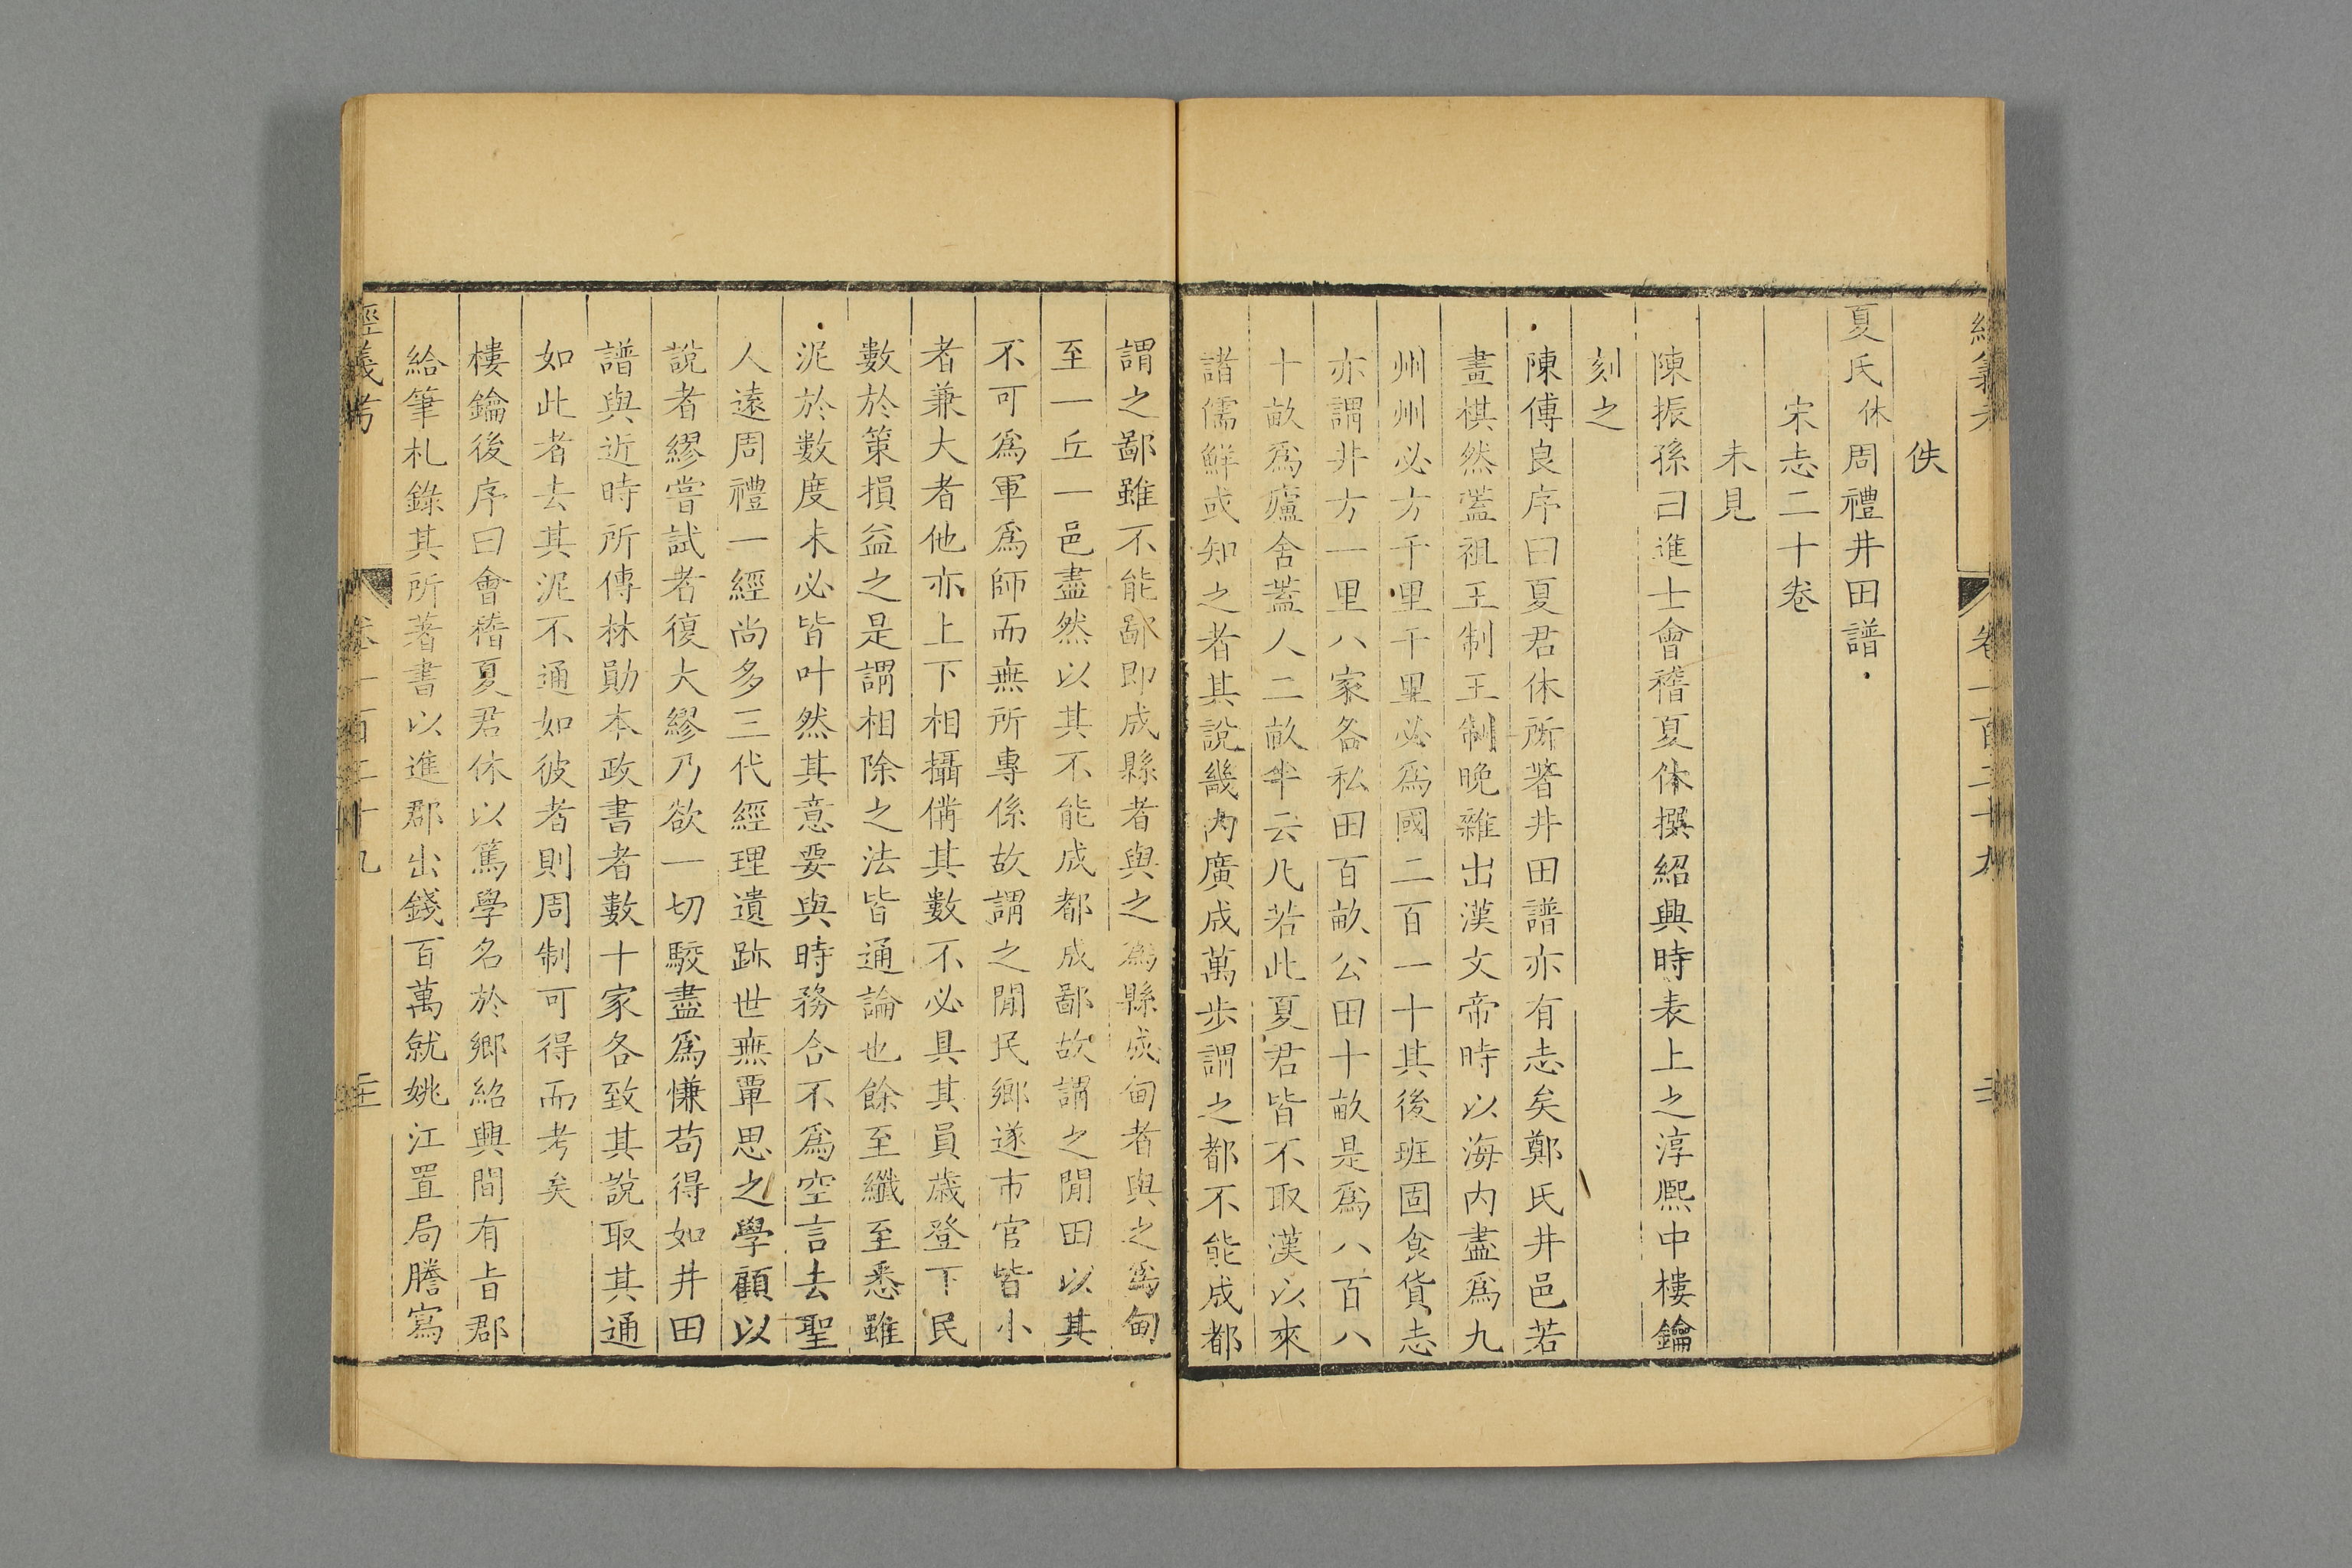 佚
夏氏休周禮井田譜
宋志二十卷
未見
陳振孫曰進士會稽夏休撰紹興時表上之淳熈中樓鑰
刻之
陳傅良序曰夏君休所著井田譜亦有志矣鄭氏井邑若
畫棋然葢祖王制王制晚雜出漢文帝時以海内盡爲九
州州必方千里千里必爲國二百一十其後班固食貨志
亦謂井方一里八家各私田百畝公田十畝是爲八百八
十畝爲廬舍葢人二畝半云凡若此夏君皆不取漢以來
諸儒鮮或知之者其說畿内廣成萬步謂之都不能成都
謂之鄙雖不能鄙即成縣者與之爲縣成甸者與之爲甸
至一丘一邑盡然以其不能成都成鄙故謂之閒田以其
不可爲軍爲師而無所專係故謂之閒民鄉遂市官皆小
者兼大者他亦上下相攝備其數不必具其員歳登下民
數於策損益之是謂相除之法皆通論也餘至纖至悉雖
泥於數度未必皆叶然其意要與時務合不爲空言去聖
人遠周禮一經尚多三代經理遺跡世無覃思之學顧以
說者繆嘗試者復大繆乃欲一切駮盡爲慊苟得如井田
譜與近時所傳林勛本政書者數十家各致其說取其通
如此者去其泥不通如彼者則周制可得而考矣
樓鑰後序曰會稽夏君休以篤學名於鄉紹興間有旨郡
給筆札錄其所著書以進郡出錢百萬就姚江置局謄寫
經義考 卷一百二十九